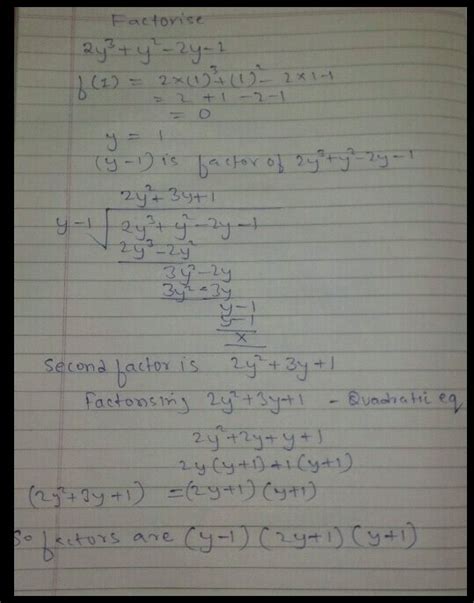 Factorise
2y³+y²-2y-1
f(1) = 2×(1)³+(1)²- 2×1-1
= 2 +1 -2-1
= 0
y = 1
(y-1) is factor of 2y³+y²-2y-1
2y²+3y+1
y-1 2y³+y²-2y-1
2y³-2y²
3y²-2y
3y²-3y
y-1
y-1
x
Second factor is 2y²+3y+1
Factorising 2y²+3y+1 - Quadratic eq
2y²+2y+y+1
2y(y+1)+1(y+1)
(2y²+3y+1) =(2y+1)(y+1)
So factors are (y-1)(2y+1)(y+1)